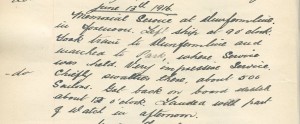 June 12th 1916
Memorial Service at Dunfermline
in forenoon. Left ship at 9 o'clock.
Took train to Dunfermline and
marched to Park, where Service
was held. Very impressive Service.
do Chiefly weather fine, about 500
Sailors. Got back on board about
about 12 o'clock. Landed with part
of watch in afternoon.